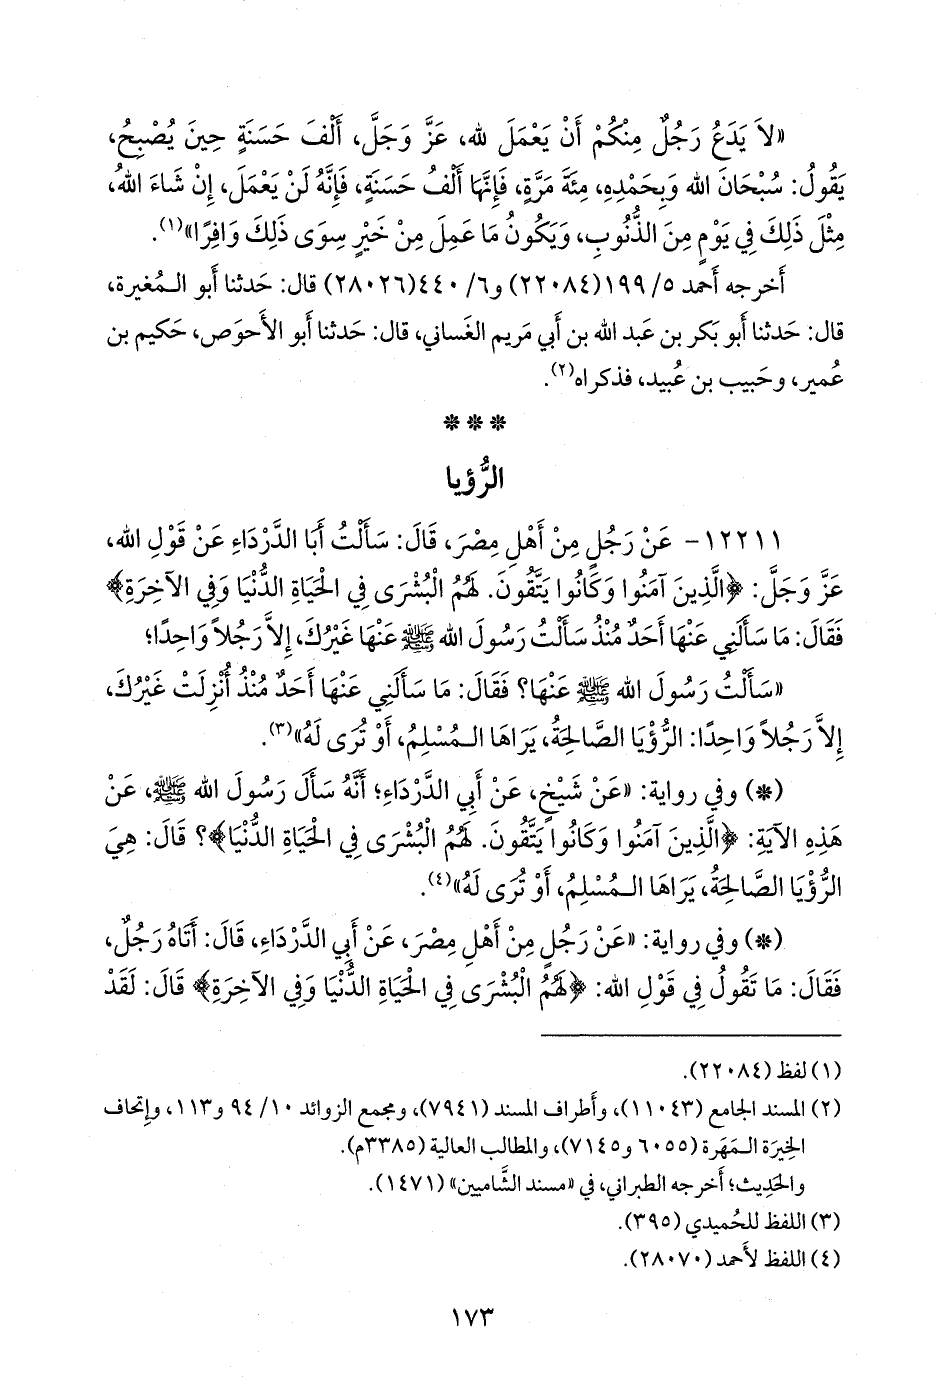 «لاَ يَدَعُ رَجُلٌ مِنْكُمْ أَنْ يَعْمَلَ لله، عَزَّ وَجَلَّ، أَلْفَ حَسَنَةٍ حِينَ يُصْبِحُ،
يَقُولُ: سُبْحَانَ الله وَبِحَمْدِهِ، مِئَةَ مَرَّةٍ، فَإِنَّهَا أَلْفُ حَسَنَةٍ، فَإِنَّهُ لَنْ يَعْمَلَ، إِنْ شَاءَ اللهُ،
مِثْلَ ذَلِكَ فِي يَوْمٍ مِنَ الذُّنُوبِ، وَيَكُونُ مَا عَمِلَ مِنْ خَيْرٍ سِوَى ذَلِكَ وَافِرًا»(١).
أخرجه أحمد ٥/ ١٩٩(٢٢٠٨٤) و٦/ ٤٤٠(٢٨٠٢٦) قال: حَدثنا أَبو الـمُغيرة،
قال: حَدثنا أَبو بَكر بن عَبد الله بن أَبي مَريم الغَساني، قال: حَدثنا أَبو الأَحوَص، حَكيم بن
عُمير، وحَبيب بن عُبيد، فذكراه(٢).
***
الرُّؤيا
١٢٢١١- عَنْ رَجُلٍ مِنْ أَهْلِ مِصْرَ، قَالَ: سَأَلْتُ أَبَا الدَّرْدَاءِ عَنْ قَوْلِ الله،
عَزَّ وَجَلَّ: ﴿الَّذِينَ آمَنُوا وَكَانُوا يَتَّقُونَ. لَهُمُ الْبُشْرَى فِي الْحَيَاةِ الدُّنْيَا وَفِي الآخِرَةِ﴾
فَقَالَ: مَا سَأَلَنِي عَنْهَا أَحَدٌ مُنْذُ سَأَلْتُ رَسُولَ الله ﷺ عَنْهَا غَيْرُكَ، إِلاَّ رَجُلاً وَاحِدًا؛
«سَأَلْتُ رَسُولَ الله ﷺ عَنْهَا؟ فَقَالَ: مَا سَأَلَنِي عَنْهَا أَحَدٌ مُنْذُ أُنْزِلَتْ غَيْرُكَ،
إِلاَّ رَجُلاً وَاحِدًا: الرُّؤْيَا الصَّالِحَةُ، يَرَاهَا الـمُسْلِمُ، أَوْ تُرَى لَهُ»(٣).
(*) وفي رواية: «عَنْ شَيْخٍ، عَنْ أَبِي الدَّرْدَاءِ؛ أَنَّهُ سَأَلَ رَسُولَ الله ﷺ، عَنْ
هَذِهِ الآيَةِ: ﴿الَّذِينَ آمَنُوا وَكَانُوا يَتَّقُونَ. لَهُمُ الْبُشْرَى فِي الْحَيَاةِ الدُّنْيَا﴾؟ قَالَ: هِيَ
الرُّؤْيَا الصَّالِحَةُ، يَرَاهَا الـمُسْلِمُ، أَوْ تُرَى لَهُ»(٤).
(*) وفي رواية: «عَنْ رَجُلٍ مِنْ أَهْلِ مِصْرَ، عَنْ أَبِي الدَّرْدَاءِ، قَالَ: أَتَاهُ رَجُلٌ،
فَقَالَ: مَا تَقُولُ فِي قَوْلِ الله: ﴿لَهُمُ الْبُشْرَى فِي الْحَيَاةِ الدُّنْيَا وَفِي الآخِرَةِ﴾ قَالَ: لَقَدْ
(١) لفظ (٢٢٠٨٤).
(٢) المسند الجامع (١١٠٤٣)، وأطراف المسند (٧٩٤١)، ومجمع الزوائد ١٠/ ٩٤ و١١٣، وإتحاف
الخِيرَة الـمَهَرة (٦٠٥٥ و٧١٤٥)، والمطالب العالية (٣٣٨٥م).
والحَدِيث؛ أَخرجه الطبراني، في «مسند الشَّاميين» (١٤٧١).
(٣) اللفظ للحُميدي (٣٩٥).
(٤) اللفظ لأَحمد (٢٨٠٧٠).
١٧٣